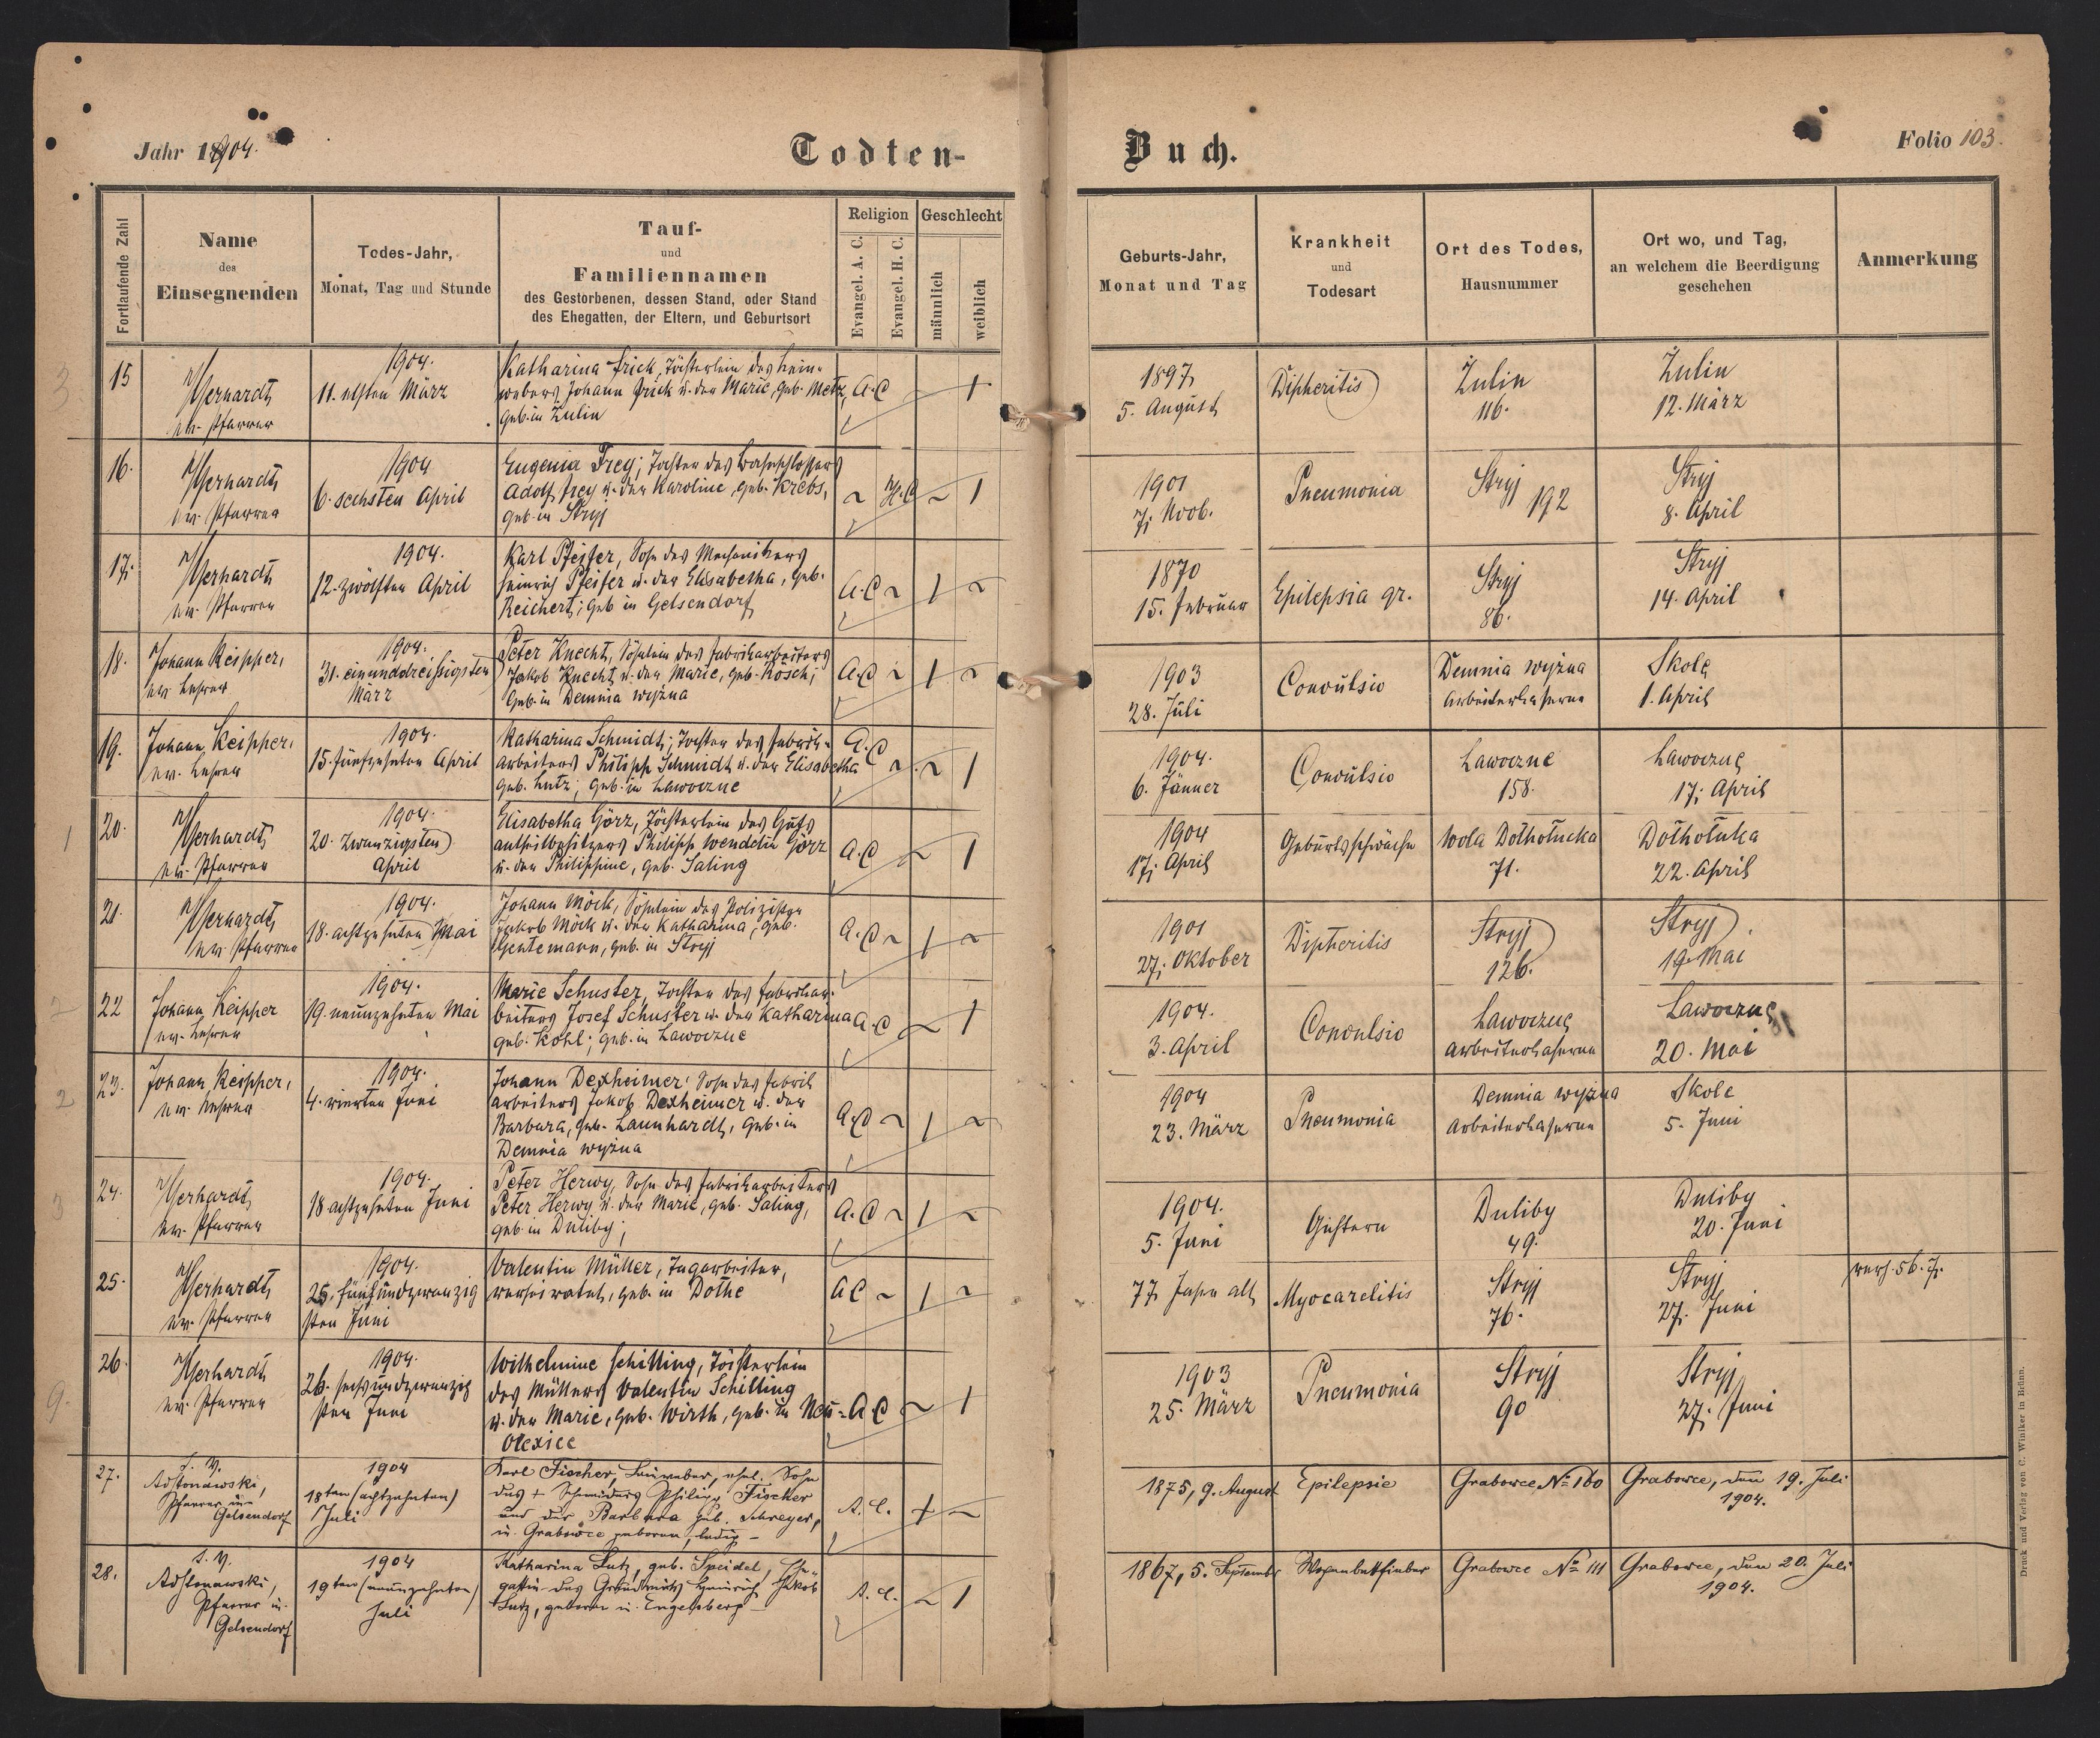 Jahr 1904.
Todten-
Buch.
Folio 103.
Fortlaufende Zahl
Name
des
Einsegnenden
Todes-Jahr,
Monat, Tag und Stunde
Tauf-
und
Familiennamen
des Gestorbenen, dessen Stand, oder Stand
des Ehegatten, der Eltern, und Geburtsort
Religion
Evangel. A. C.
Evangel. H. C.
Geschlecht
männlich
weiblich
Geburts-Jahr,
Monat und Tag
Krankheit
und
Todesart
Ort des Todes,
Hausnummer
Ort wo, und Tag,
an welchem die Beerdigung
geschehen
Anmerkung
15
Gerhardt,
ev. Pfarrer
1904.
11. elften März
Katharina Frick, Töchterlein des Lein-
webers Johann Frick u. der Marie, geb. Metz,
geb. in Żulin
A.C
1
1897,
5. August
Dipheritis
Żulin
116.
Żulin
12. März
16.
Gerhardt,
ev. Pfarrer
1904
6. sechsten April
Eugenia Frey; Tochter des Bahnschlossers
Adolf Frey u. der Karoline, geb. Krebs,
geb. in Stryj
~ H.C ~ 1
1901
7. Novb.
Pneumonia
Stryj
192
Stryj
8. April
17.
Gerhardt,
ev. Pfarrer
1904.
12. zwölften April
Karl Pfeifer, Sohn des Mechanikers
Heinrich Pfeifer u. der Elisabetha, geb.
Reichert; geb in Gelsendorf
A.C ~ 1 ~
1870
15. Februar
Epilepsia gr.
Stryj
86.
Stryj
14. April
18.
Johann Keipper,
ev. Lehrer
1904.
31. einunddreissigsten
März
Peter Knecht, Söhnlein des Fabrikarbeiters
Jakob Knecht u. der Marie, geb. Kosch;
geb. in Demnia wyżna
A.C ~ 1 ~
1903
28. Juli
Convulsio
Demnia wyżna
Arbeiterkaserne
Skole
1. April
19.
Johann Keipper,
ev. Lehrer
1904.
15. fünfzehnten April
Katharina Schmidt; Tochter des Fabrik-
arbeiters Philipp Schmidt u. der Elisabetha
geb. Lutz; geb. in Lawoczne
A.C ~ ~ 1
1904.
6. Jänner
Convulsio
Lawoczne
158.
Lawoczne
17. April
20.
Gerhardt,
ev. Pfarrer
1904.
20. zwanzigsten
April
Elisabetha Görz, Töchterlein des Guts
antheilbesitzers Philipp Wendelin Görz
u. der Philippine, geb. Saling
A.C ~ 1
1904
17. April
Geburtsschwäche
Wola Dołhołucka
71.
Dołhołuka
22. April
21.
Gerhardt,
ev. Pfarrer
1904.
18. achtzehnten Mai
Johann Möck, Söhnlein des Polizisten
Jakob Möck u. der Katharina, geb.
Gentemann, geb. in Stryj
A.C ~ 1 ~
1901
27. Oktober
Diptheritis
Stryj
126.
Stryj
19. Mai
22
Johann Keipper
ev. Lehrer
1904.
19. neunzehnten Mai
Marie Schuster, Tochter des Fabrikar-
beiters Josef Schuster u. der Katharina
geb. Kohl; geb. in Lawoczne
A.C ~ 1
1904.
3. April
Convulsio
Lawoczne
Arbeiterkaserne
Lawoczne
20. Mai
23.
Johann Keipper,
ev. Lehrer
1904.
4. vierten Juni
Johann Dexheimer, Sohn des Fabrik
arbeiters Jakob Dexheimer u. der
Barbara, geb. Launhardt, geb. in
Demnia wyżna
A.C ~ 1 ~
1904
23. März
Pneumonia
Demnia wyżna
Arbeiterkaserne
Skole
5. Juni
24.
Gerhardt,
ev. Pfarrer
1904.
18 achtzehnten Juni
Peter Herwy, Sohn des Fabrikarbeiters
Peter Herwy u. der Marie, geb. Saling,
geb in Duliby;
A.C ~ 1 ~
1904.
5. Juni
Gichtern
Duliby
49.
Duliby
20. Juni
25.
Gerhardt,
ev. Pfarrer
1904.
25. fünfundzwanzig
sten Juni
Valentin Müller, Tagarbeiter,
verheiratet, geb. in Dołhe
A C ~ 1 ~
77 Jahre alt
Myocarditis
Stryj
76.
Stryj
27. Juni
verh. 56. J.
26.
Gerhardt,
ev. Pfarrer
1904.
26. sechsundzwanzig
sten Juni
Wilhelmine Schilling, Töchterlein
des Müllers Valentin Schilling
u. der Marie, geb. Wirth, geb. in Neu-
Olexice
A.C ~ 1
1903
25. März
Pneumonia
Stryj
90
Stryj
27. Juni
27.
Pfarrer in
Gelsendorf
1904
18ten (achtzehnten)
Juli
Karl Fischer, Leinweber, ehel. Sohn
des + Schneiders Philipp Fischer
und der Barbara geb. Schreyer,
in Grabowce geboren, ledig –
A.C. + ~
1875, 9. August
Epilepsie
Grabowce No 160
Grabowce, den 19. Juli
1904.
28.
Pfarrer in
Gelsendorf
1904
19ten (neunzehnten)
Juli
Katharina Lutz, geb. Speidel, Ehe-
gattin des Grundwirts Heinrich Jakob
Lutz, geboren in Engelsberg –
A.C. ~ 1
1867, 5. September
Wochenbettfieber
Grabowce No 111
Grabowce, den 20. Juli
1904.
Druck und Verlag von C. Winiker in Brünn.